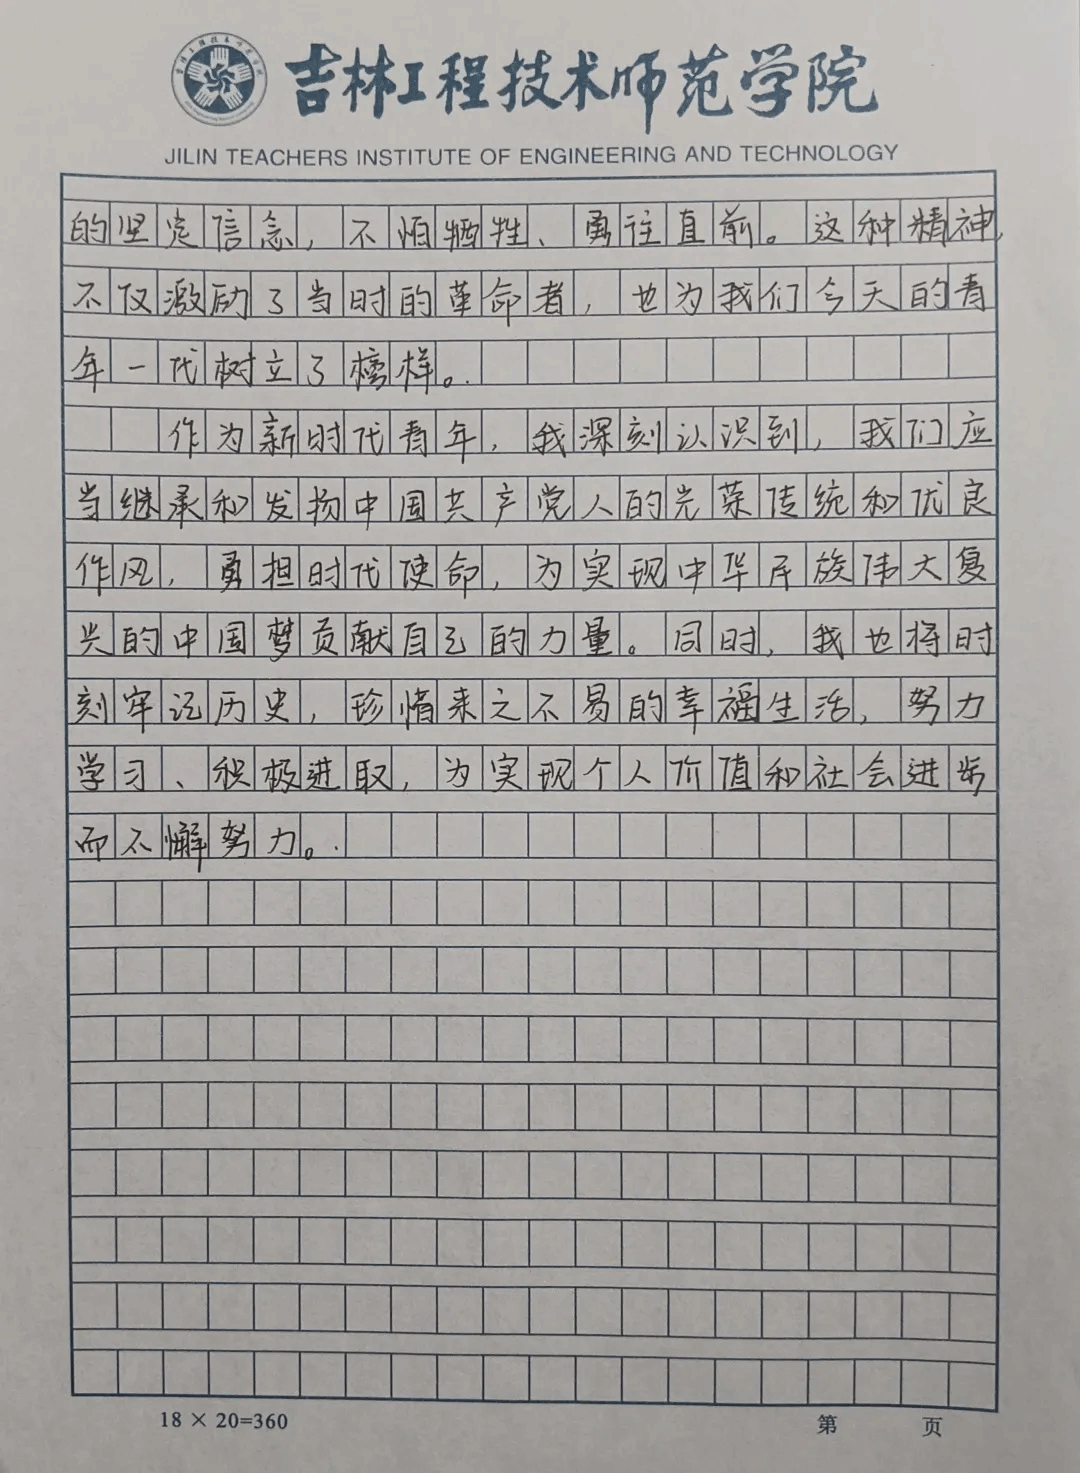 吉林工程技术师范学院
JILIN TEACHERS INSTITUTE OF ENGINEERING AND TECHNOLOGY
的坚定信念，不怕牺牲、勇往直前。这种精神，
不仅激励了当时的革命者，也为我们今天的青
年一代树立了榜样。
作为新时代青年，我深刻认识到，我们应
当继承和发扬中国共产党人的光荣传统和优良
作风，勇担时代使命，为实现中华民族伟大复
兴的中国梦贡献自己的力量。同时，我也将时
刻牢记历史，珍惜来之不易的幸福生活，努力
学习、积极进取，为实现个人价值和社会进步
而不懈努力。
18 × 20=360
第 页